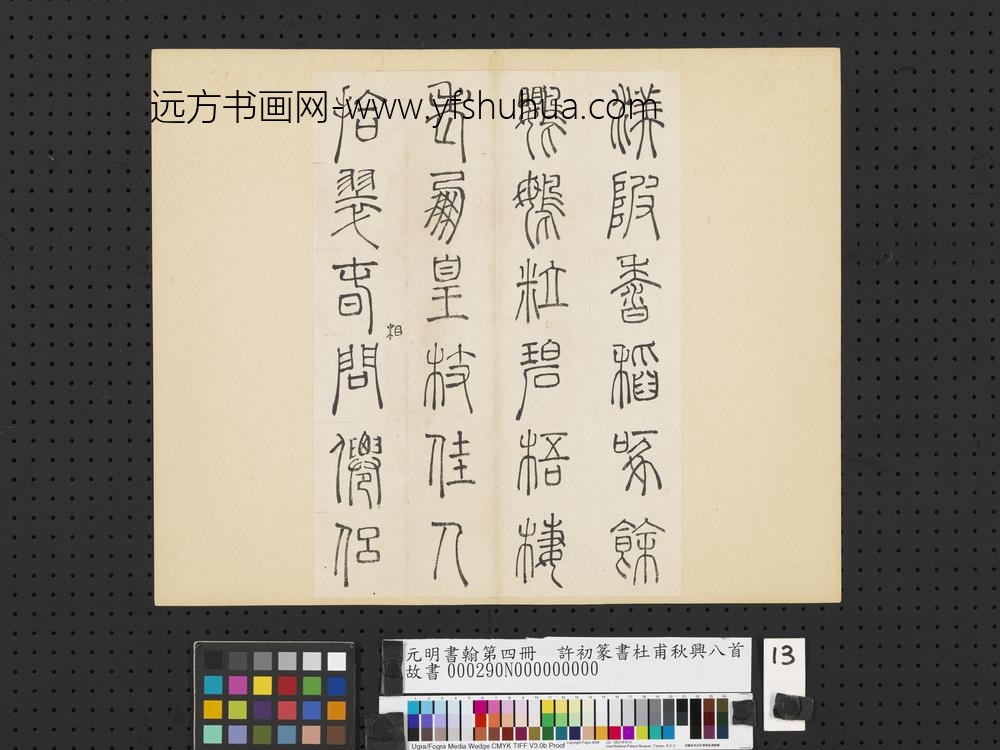 远方书画网-www.yfshuhua.com
渼陂香稻啄餘
鸚䳇粒碧梧棲
老鳳皇枝佳人
拾翠春相問僊侶
元明書翰第四冊 許初篆書杜甫秋興八首
故書 000290N000000000
13
Ugra/Fogra Media Wedge CMYK TIFF V3.0b Proof